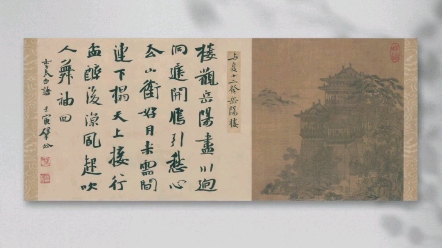 与夏十二登岳陽樓
樓觀岳陽盡川迥
洞庭開鴈引愁心
去山銜好月来雲間
連下榻天上接行
盃醉後涼風起吹
人舞袖回
李太白詩 壬寅